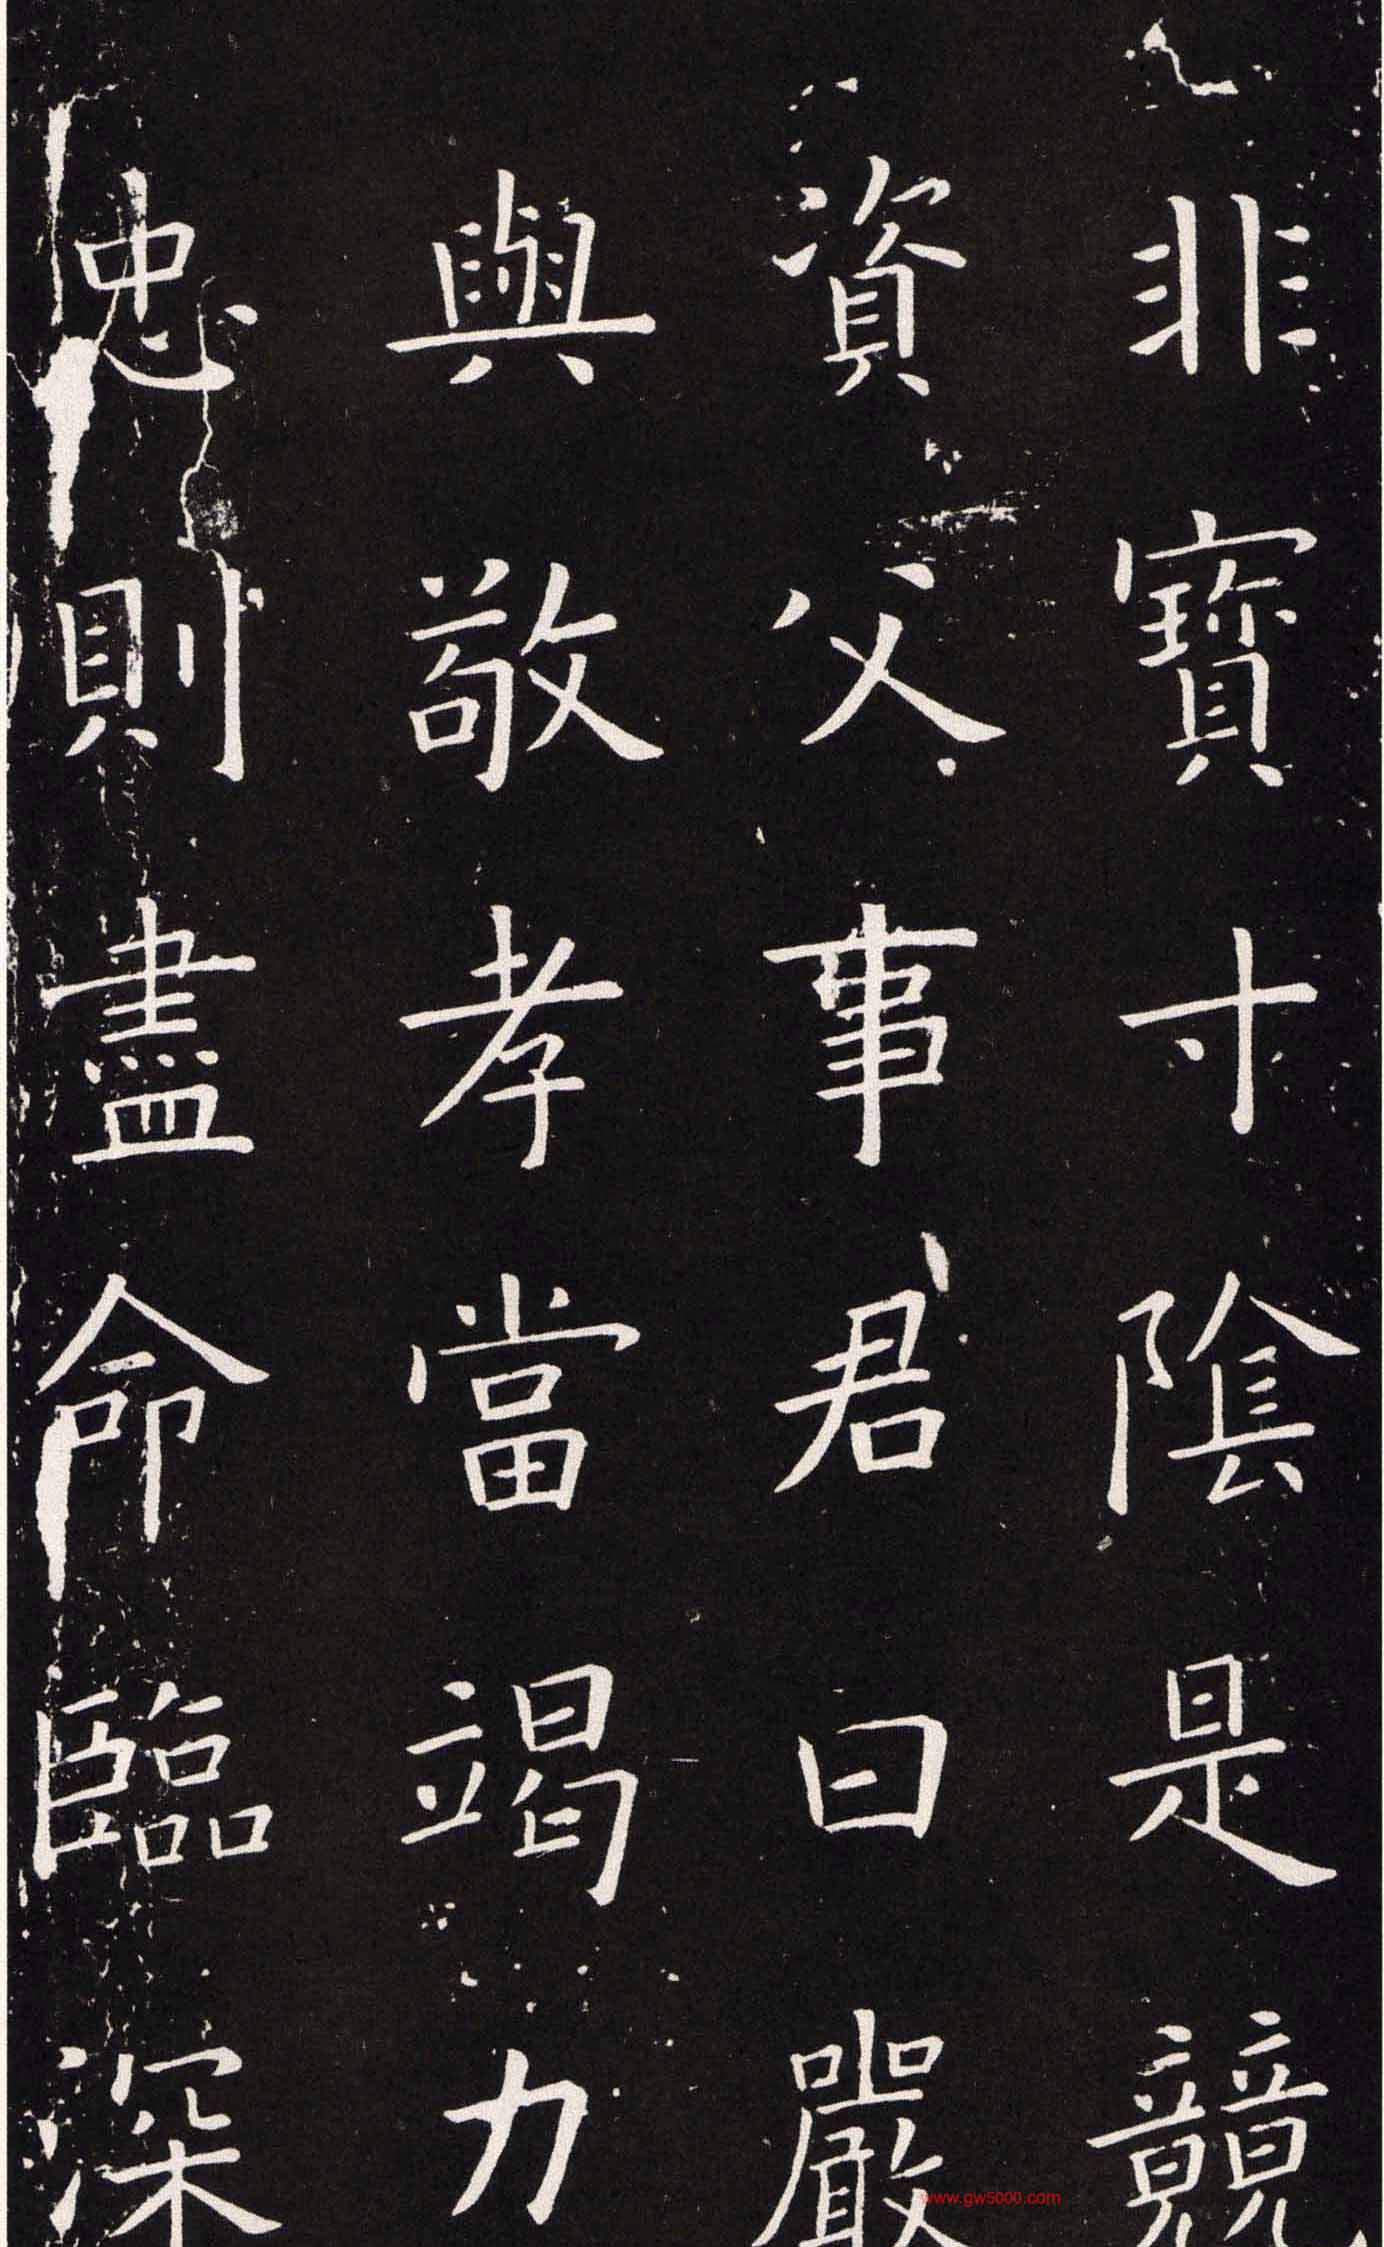 非寶寸陰是競
資父事君曰嚴
與敬孝當竭力
忠則盡命臨深
www.gw5000.com